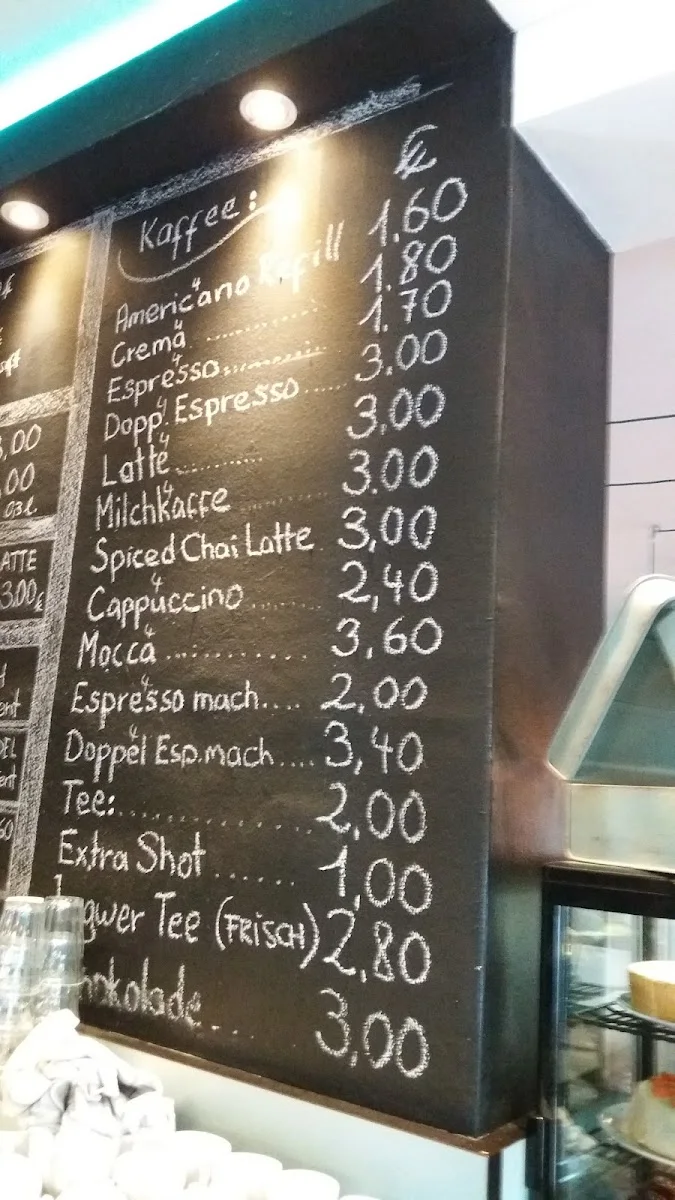 ,00
,00
03l
ATTE
3.00€
ent
DEL
ent
60
Kaffee: €
Americano Refill 1.60
Crema ............ 1.80
Espresso............ 1.70
Dopp. Espresso ..... 3.00
Latte .......... 3.00
Milchkaffe ......... 3.00
Spiced Chai Latte 3,00
Cappuccino ........ 2,40
Mocca ........... 3,60
Espresso mach.... 2,00
Doppel Esp.mach .... 3,40
Tee: ............... 2,00
Extra Shot ....... 1,00
gwer Tee (FRISCH) 2,80
hokolade .... 3,00